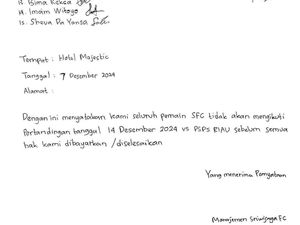 13. Bima Reksa
14. Imam Witoyo
15. Sheva
Tempat : Hotel Majestic
Tanggal : 7 Desember 2024
Alamat :
Dengan ini menyatakan kami seluruh pemain SFC tidak akan mengikuti
Pertandingan tanggal 14 Desember 2024 vs PSPS RIAU sebelum semua
hak kami dibayarkan /diselesaikan
Yang menerima Pernyataan
Manajemen Sriwijaya FC